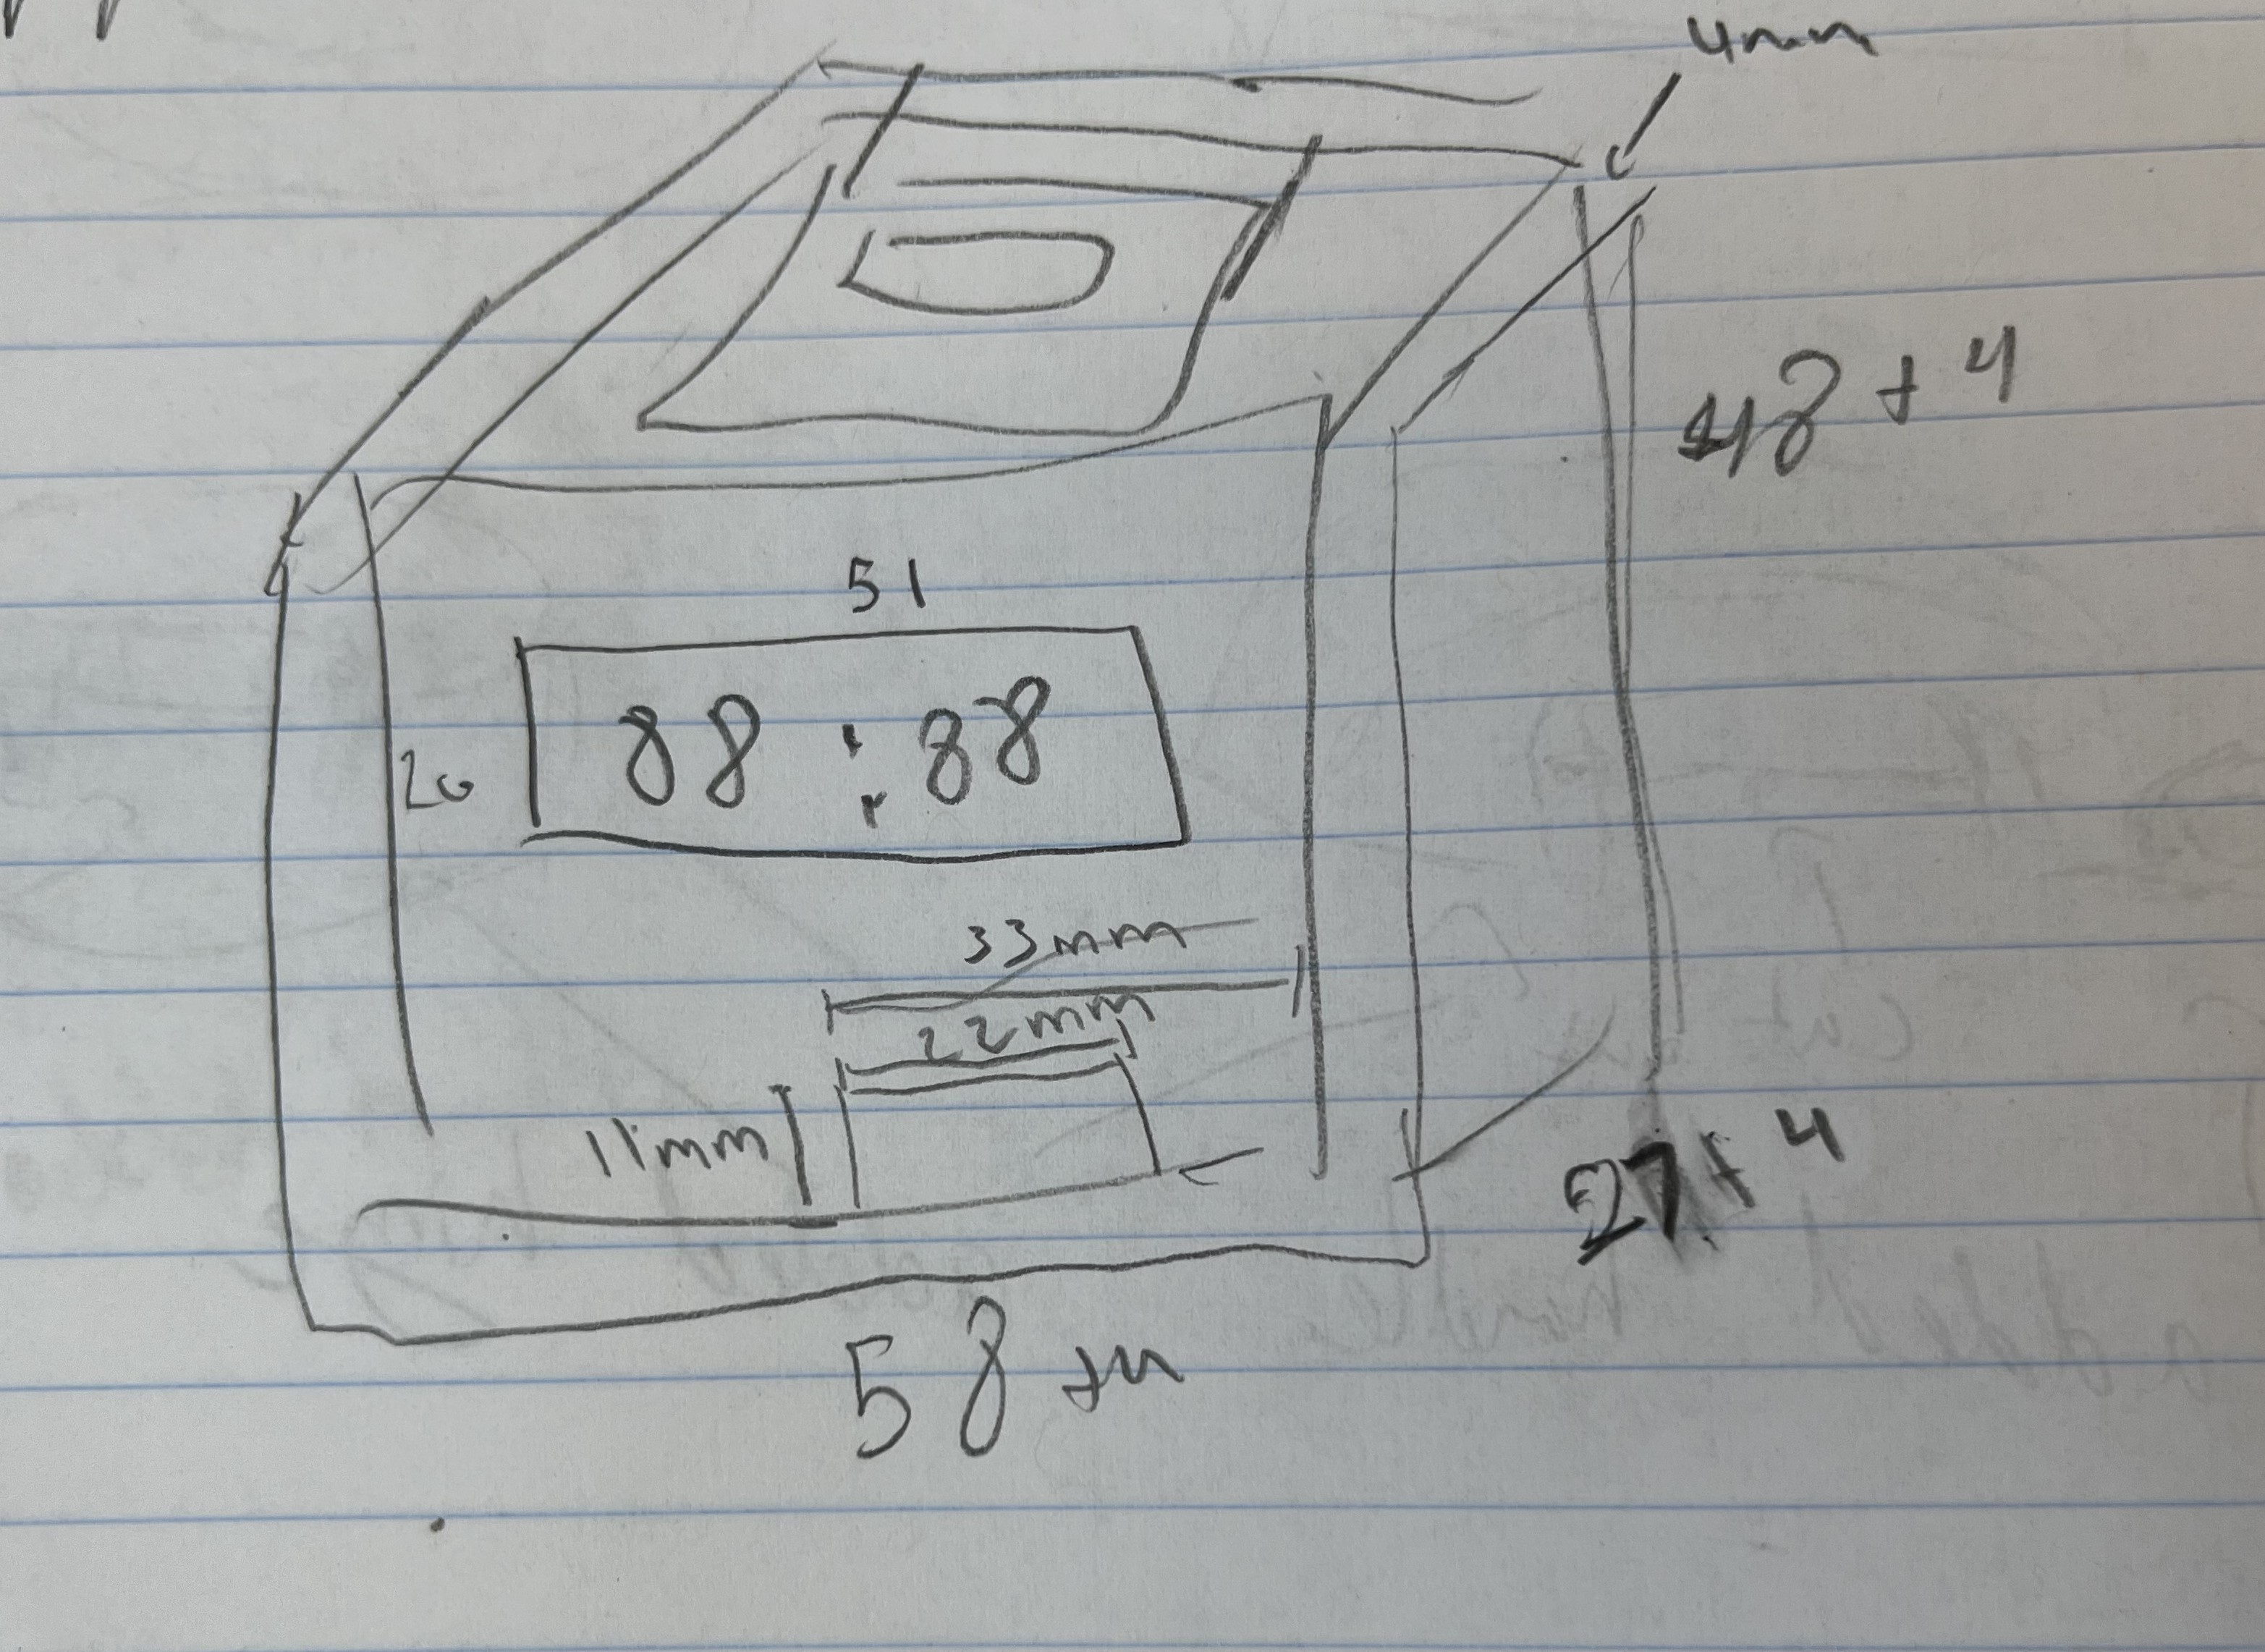 4mm
48+4
51
88:88
20
33mm
22mm
11mm
27+4
58+4